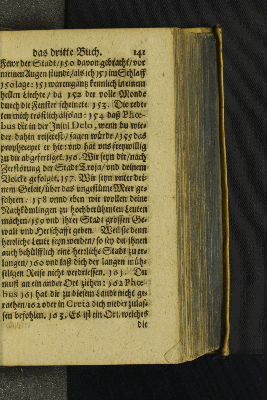 das dritte Buch. 141
Fewr der Stadt/150 davon gebracht/ vor
meinen Augen stunde/ als ich 151 im Schlaff
150 lage: 151 waren gantz kenntlich in einem
hellen Liechte/ da 152 der volle Monde
durch die Fenster scheinete. 153. Die rede-
ten mich tröstlich also an: 154 daß Phœ-
bus dir in der Insul Delo, wenn du wie-
der dahin reisetest/ sagen würde/ 155 das
propheceyet er hie: und hat uns freywillig
zu dir abgefertiget. 156. Wir seyn dir/ nach
Zerstörung der Stadt Troja/ und deinem
Volcke gefolget. 157. Wir seyn unter dei-
nem Geleit/ über das ungestüme Meer ge-
fahren: 158 vnnd eben wir wollen deine
Nachkömlingen zu hochberühmten Leuten
machen/ 159 und ihrer Stadt grössen Ge-
walt und Herschafft geben. Weil sie denn
herzliche Leute seyn werden/ so sey du ihnen
auch behülfflich eine herzliche Stadt zu er-
langen/ 160 und laß dich der langen müh-
seligen Reise nicht verdriessen. 161. Du
must an ein ander Ort ziehen: 162 Phœ-
bus 161 hat dir zu diesem Lande nicht ge-
rathen/ 162 oder in Creta dich nieder zulas-
sen befohlen. 163. Es ist ein Ort/ welches
die